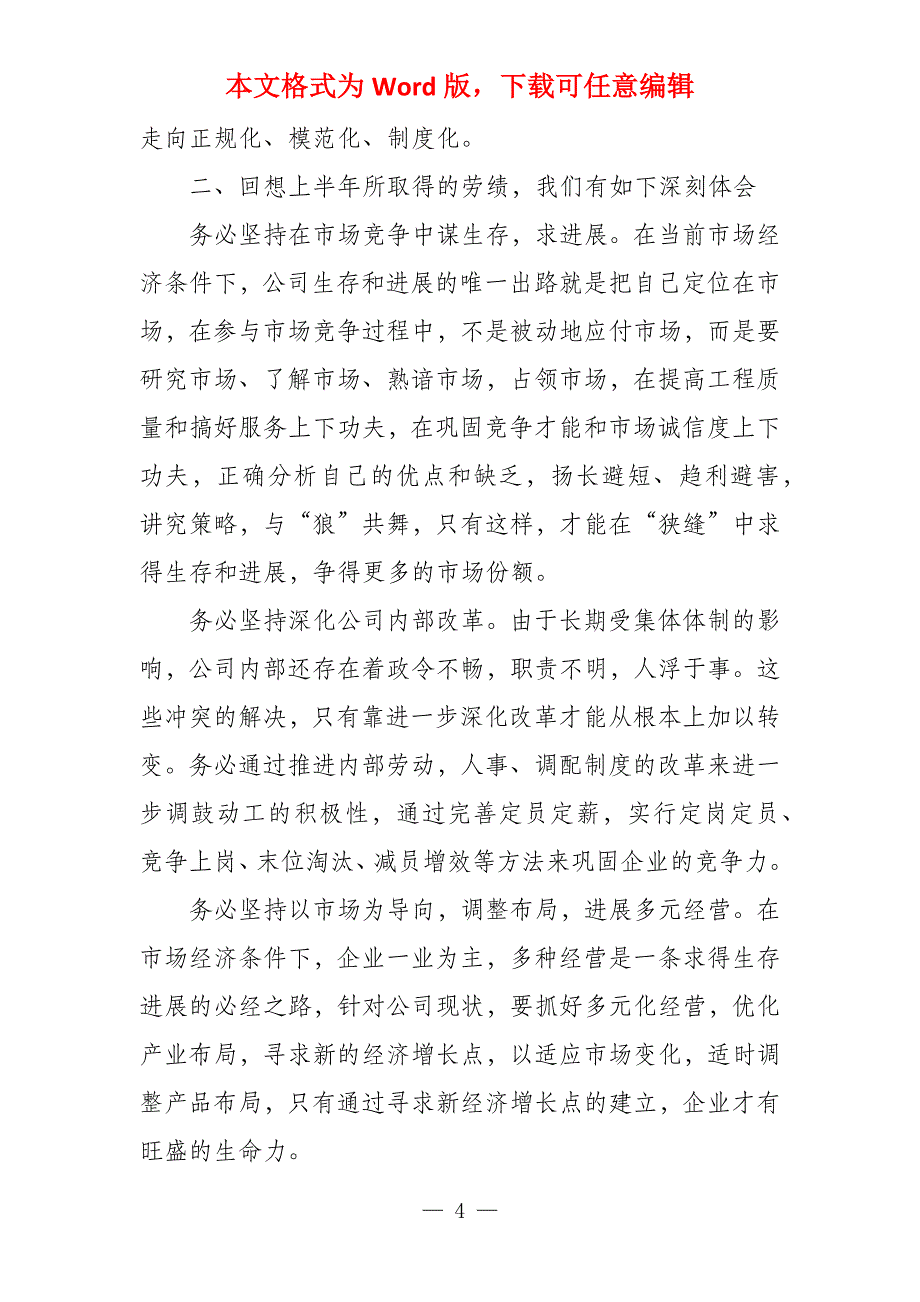 本文格式为 Word 版，下载可任意编辑
走向正规化、模范化、制度化。
二、回想上半年所取得的劳绩，我们有如下深刻体会
务必坚持在市场竞争中谋生存，求进展。在当前市场经
济条件下，公司生存和进展的唯一出路就是把自己定位在市
场，在参与市场竞争过程中，不是被动地应付市场，而是要
研究市场、了解市场、熟谙市场，占领市场，在提高工程质
量和搞好服务上下功夫，在巩固竞争才能和市场诚信度上下
功夫，正确分析自己的优点和缺乏，扬长避短、趋利避害，
讲究策略，与“狼”共舞，只有这样，才能在“狭缝”中求
得生存和进展，争得更多的市场份额。
务必坚持深化公司内部改革。由于长期受集体体制的影
响，公司内部还存在着政令不畅，职责不明，人浮于事。这
些冲突的解决，只有靠进一步深化改革才能从根本上加以转
变。务必通过推进内部劳动，人事、调配制度的改革来进一
步调鼓动工的积极性，通过完善定员定薪，实行定岗定员、
竞争上岗、末位淘汰、减员增效等方法来巩固企业的竞争力。
务必坚持以市场为导向，调整布局，进展多元经营。在
市场经济条件下，企业一业为主，多种经营是一条求得生存
进展的必经之路，针对公司现状，要抓好多元化经营，优化
产业布局，寻求新的经济增长点，以适应市场变化，适时调
整产品布局，只有通过寻求新经济增长点的建立，企业才有
旺盛的生命力。
— 4 —